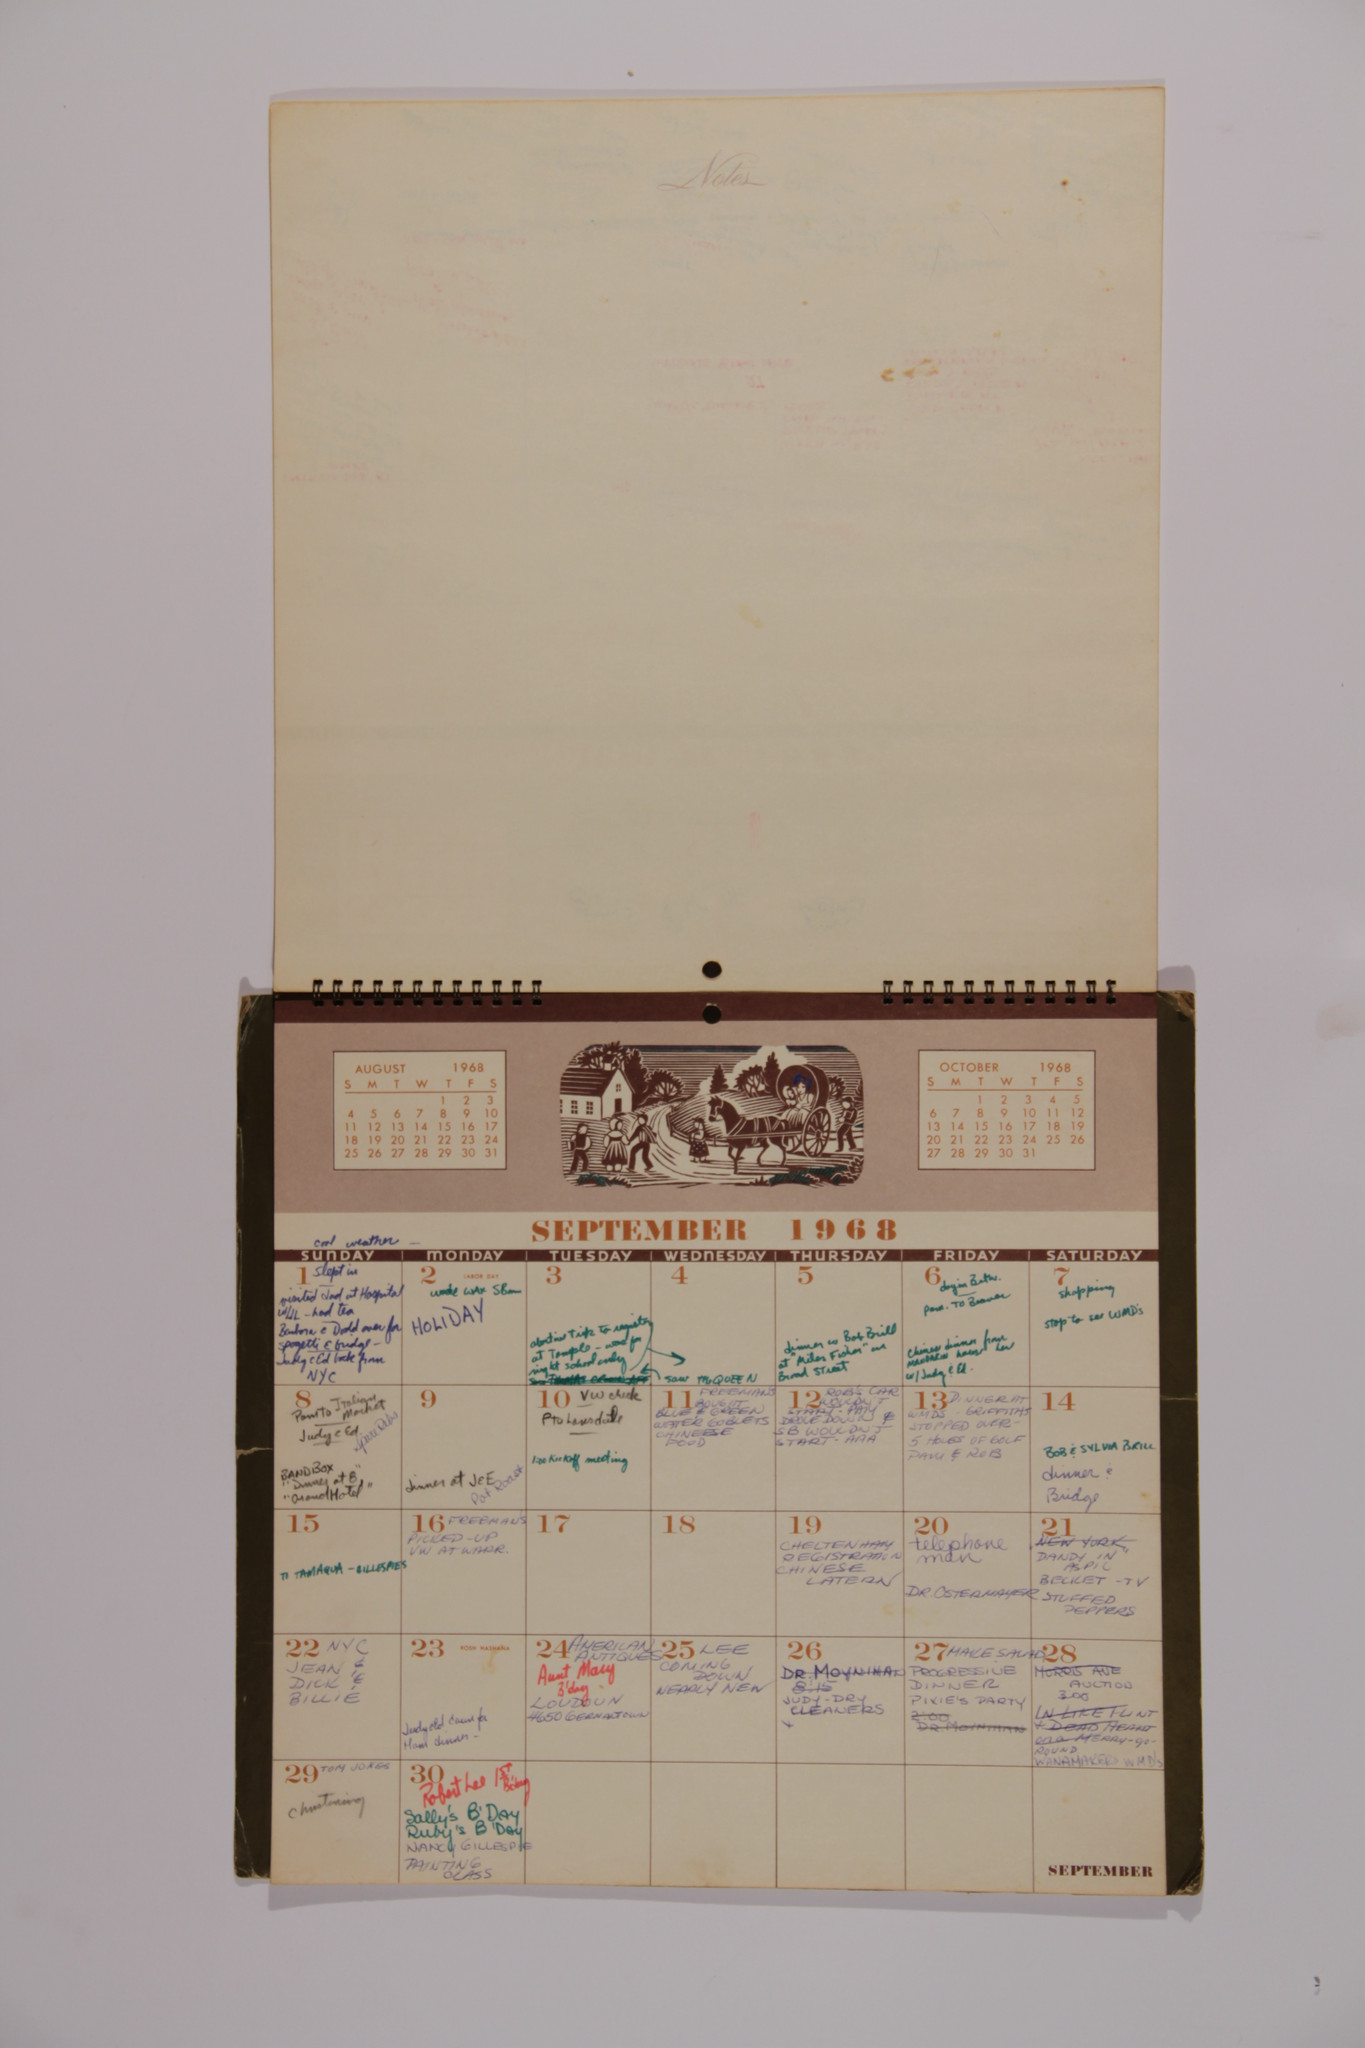 Notes
AUGUST 1968
S M T W T F S
1 2 3
4 5 6 7 8 9 10
11 12 13 14 15 16 17
18 19 20 21 22 23 24
25 26 27 28 29 30 31
OCTOBER 1968
S M T W T F S
1 2 3 4 5
6 7 8 9 10 11 12
13 14 15 16 17 18 19
20 21 22 23 24 25 26
27 28 29 30 31
SEPTEMBER 1968
cool weather –
SUNDAY MONDAY TUESDAY WEDNESDAY THURSDAY FRIDAY SATURDAY
1 slept in
visited at Hospital
had tea
Barbara & Dodd over for
spagetti & bridge –
Judy & Ed back from
NYC
2 LABOR DAY
HOLIDAY
3
trip to register
at Temple –
night school only
4
saw McQUEEN
5
dinner w Bob Brill
at "Miles Fisher" on
Broad Street
6
Pam. To
Chinese dinner from
w/ Judy & Ed.
7
shopping
stop to see WMD's
8
Pam to Italian
Market
Judy & Ed.
BANDBOX
"Dinner at 8"
"Grand Hotel"
9
dinner at J&E
Pot Roast
10 VW check
P to Lansdale
1:00 Kickoff meeting
11 FREEMAN'S
BOUGHT
BLUE & GREEN
WATER GOBLETS
CHINESE
FOOD
12 ROB'S CAR
WOULDN'T
START – PAM
DROVE DOWN &
SB WOULDN'T
START – AAA
13 DINNER AT
WMDS GRIFFITHS
STOPPED OVER –
5 HOLES OF GOLF
PAM & ROB
14
BOB & SYLVIA BRILL
dinner &
Bridge
15
TO TAMAQUA – GILLESPIES
16 FREEMAN'S
PICKED-UP
VW AT WARR.
17
18
19
CHELTENHAM
REGISTRATION
CHINESE
LATERN
20
telephone
man
DR OSTERMAYER
21
NEW YORK
DANDY IN
ASPIC
BECKET – TV
STUFFED
PEPPERS
22 NYC
JEAN &
DICK &
BILLIE
23 ROSH HASHANA
Judy & Ed came for
dinner –
24 AMERICAN
ANTIQUES
Aunt Mary
B'day
LOUDOUN
4650 GERMANTOWN
25 LEE
COMING
DOWN
NEARLY NEW
26
DR MOYNIHAN
8:15
JUDY – DRY
CLEANERS
27 MAKE SALAD
PROGRESSIVE
DINNER
PIXIE'S PARTY
2:00
DR MOYNIHAN
28
MORRIS AVE
AUCTION
3:00
IN LIKE FLINT
& DEAD HEAT
ON A MERRY-GO-
ROUND
WANAMAKERS WMD's
29 TOM JONES
christening
30
Robert Lee 1st B'day
Sally's B'DAY
Ruby's B'DAY
NANCY GILLESPIE
PAINTING
CLASS
SEPTEMBER